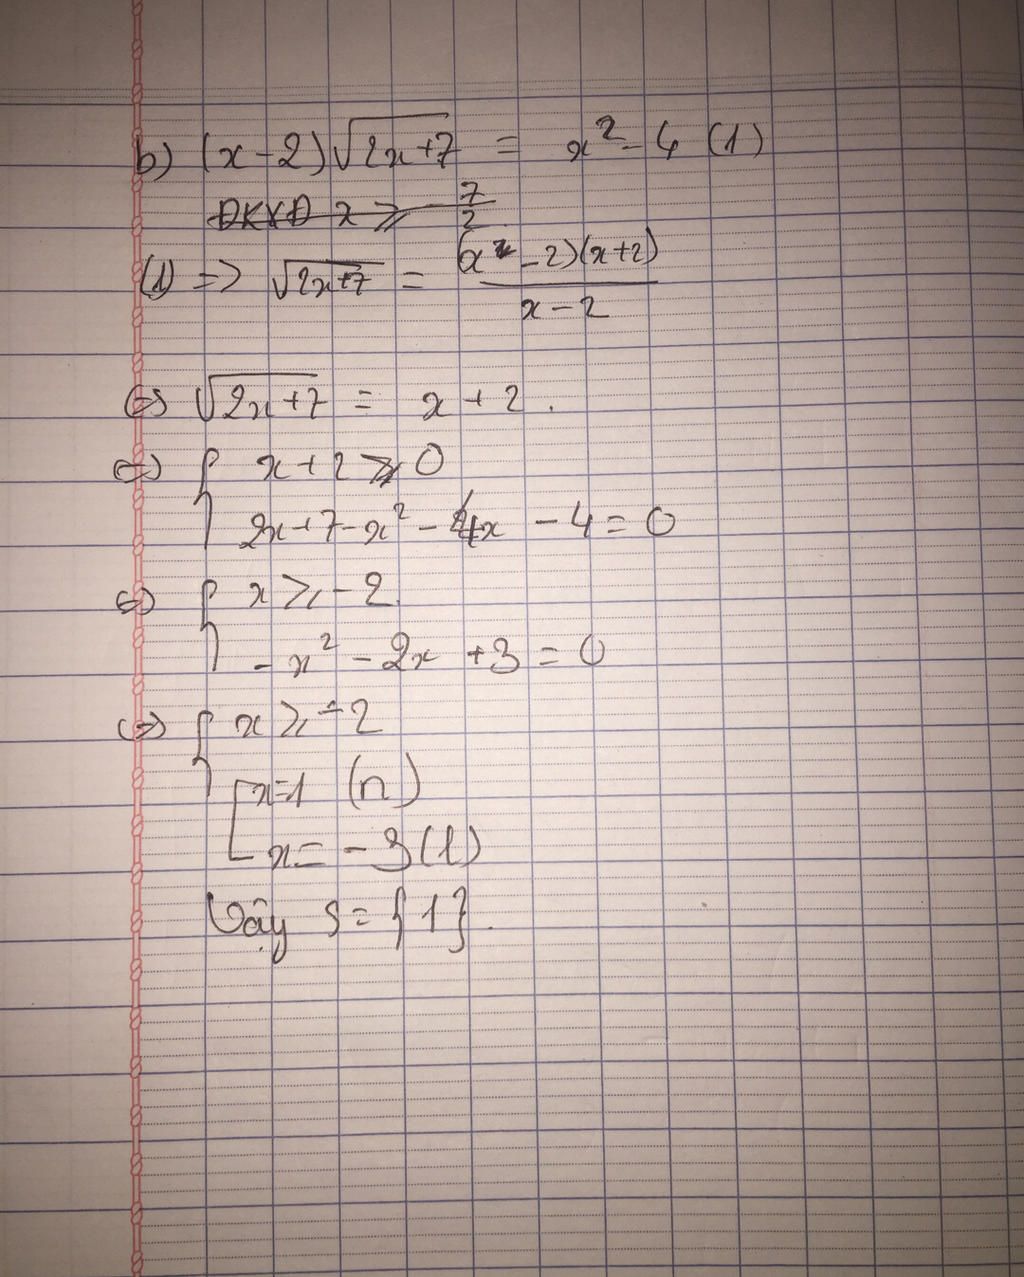 b) (x-2)√(2x+7) = x² - 4 (1)
ĐKXĐ x ≥ -7/2
(1) => √(2x+7) = (x-2)(x+2)/(x-2)
<=> √(2x+7) = x + 2 .
<=> { x + 2 ≥ 0
2x+7-x² - 4x - 4 = 0
<=> { x ≥ -2
-x² - 2x + 3 = 0
<=> { x ≥ -2
[ x=1 (n)
x = -3 (l)
Vậy S = {1}.